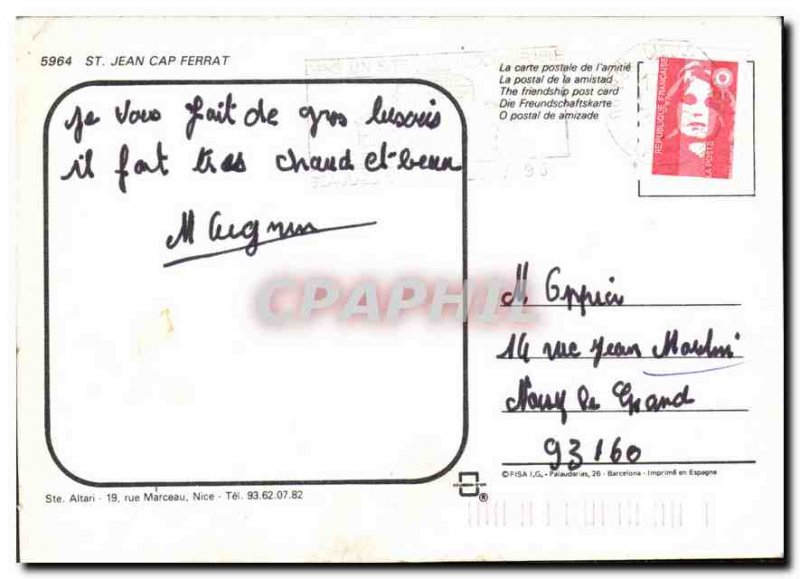 5964 ST. JEAN CAP FERRAT
La carte postale de l'amitié
La postal de la amistad
The friendship post card
Die Freundschaftskarte
O postal de amizade
REPUBLIQUE FRANÇAISE
LA POSTE
je vous fait de gros bisous
il fait très chaud et beau
M
CPAPHIL
M.
14 rue Jean Moulin
Noisy le Grand
93160
© FISA I.G. - Palaudarias, 26 - Barcelona - Imprimé en Espagne
Ste. Altari - 19, rue Marceau, Nice - Tél. 93.62.07.82
®